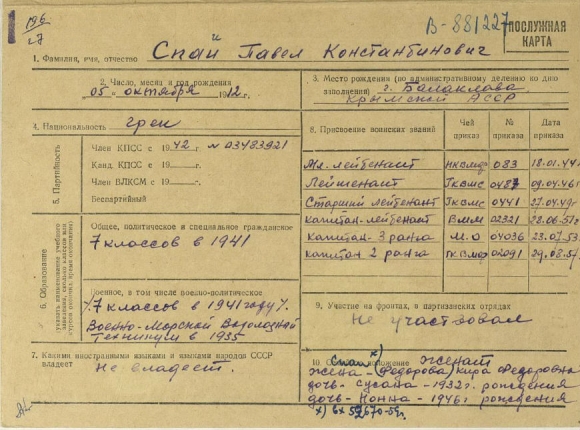 196
27
В-881227
ПОСЛУЖНАЯ
КАРТА
1. Фамилия, имя, отчество Спай Павел Константинович
2. Число, месяц и год рождения
05 октября 1912 г.
3. Место рождения (по административному делению ко дню
заполнения) г. Балаклава
Крымской АССР
4. Национальность грек
5. Партийность
Член КПСС с 1942 г. № 03483921
Канд. КПСС с 19 г.
Член ВЛКСМ с 19 г.
Беспартийный
6. Образование
Общее, политическое и специальное гражданское
7 классов в 1941
Военное, в том числе военно-политическое
7 классов в 1941 году
Военно-Морской Водолазный
Техникум в 1935
7. Какими иностранными языками и языками народов СССР
владеет Не владеет.
8. Присвоение воинских званий
Чей приказ
№ приказа
Дата приказа
Мл. лейтенант НКВМФ 083 18.01.44
Лейтенант ГКВМС 0487 09.04.46
Старший лейтенант ГКВМС 0441 27.04.49
Капитан-лейтенант ВММ 02321 28.06.51
Капитан-3 ранга М.О 04036 23.07.53
Капитан 2 ранга ГК ВМФ 02091 29.08.57
9. Участие на фронтах, в партизанских отрядах
Не участвовал
10. Семейное положение Женат
Спай х)
Жена - Федорова Кира Федоровна
дочь - Сусана - 1932 г. рождения
дочь - Нонна - 1946 г. рождения